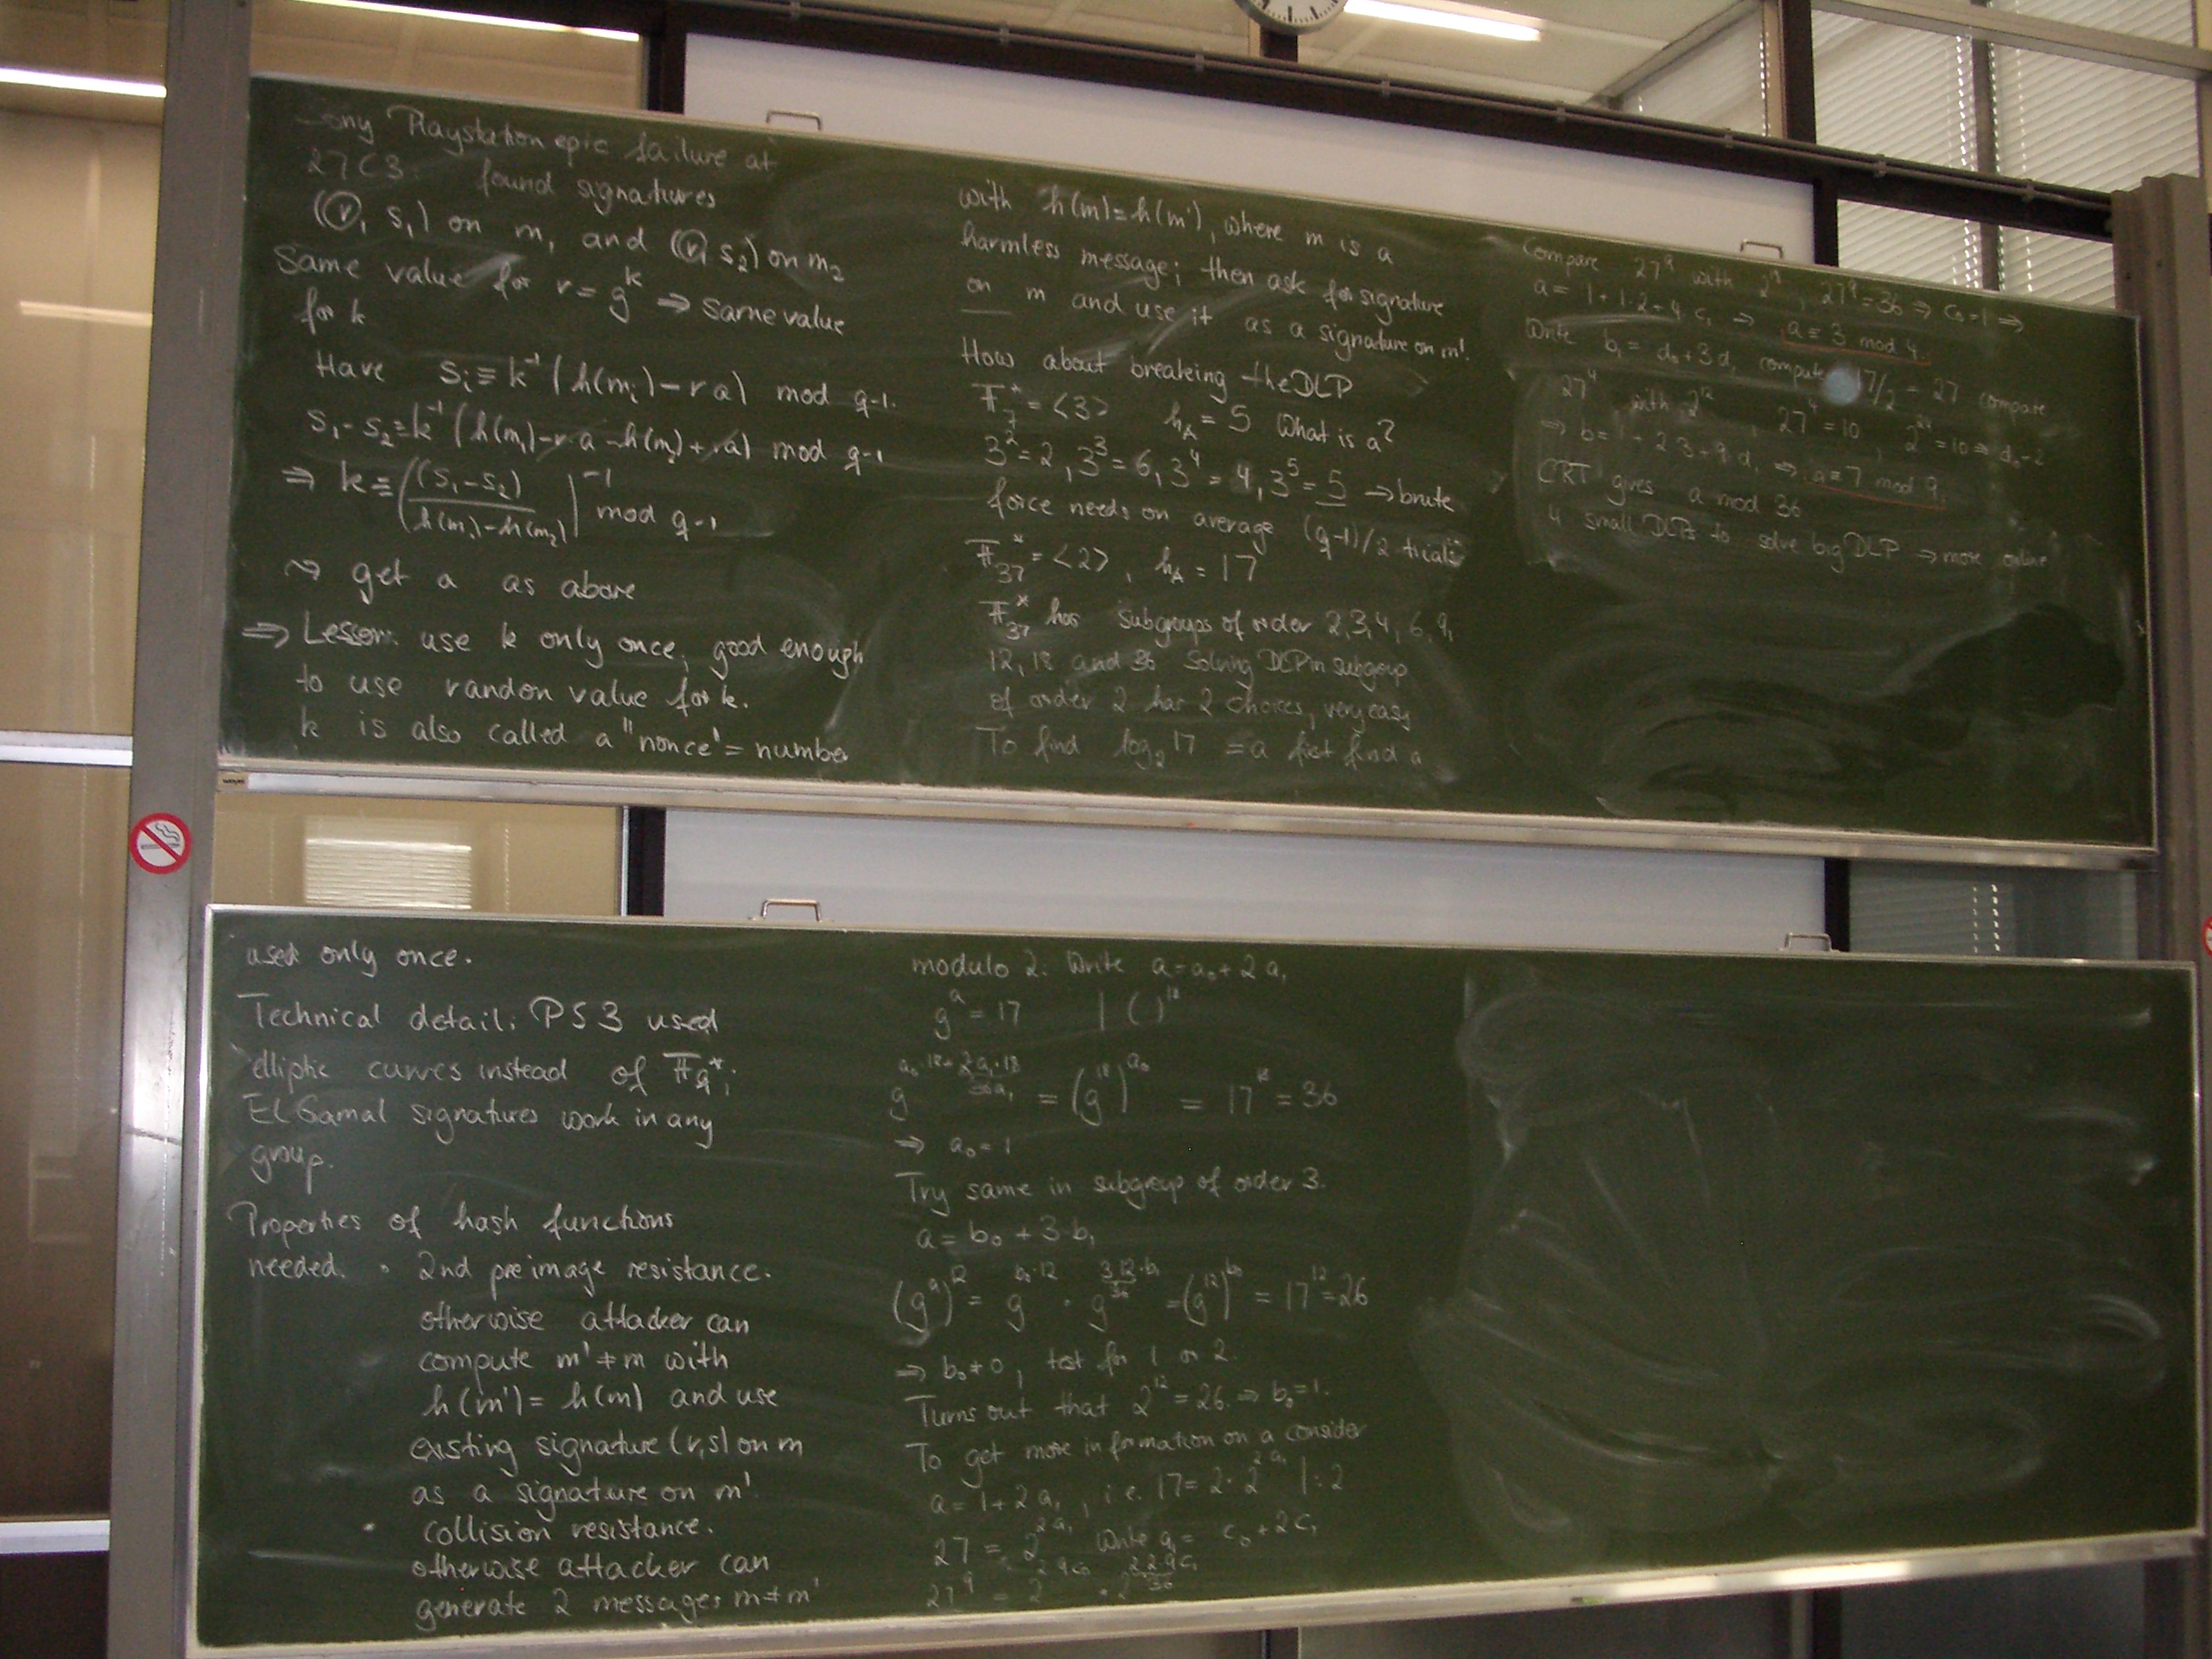 Sony Playstation epic failure at
27C3: found signatures
(r, s₁) on m₁ and (r, s₂) on m₂
Same value for r = g^k ⇒ same value
for k
Have sᵢ ≡ k⁻¹(h(mᵢ) − r a) mod q-1.
s₁ − s₂ ≡ k⁻¹(h(m₁) − r a − h(m₂) + r a) mod q-1
⇒ k ≡ ((s₁ − s₂)/(h(m₁) − h(m₂)))⁻¹ mod q-1
⇝ get a as above
⇒ Lesson: use k only once; good enough
to use randon value for k.
k is also called a "nonce" = number
used only once.
Technical detail: PS3 used
elliptic curves instead of F_q*;
ElGamal signatures work in any
group.
Properties of hash functions
needed. • 2nd preimage resistance.
otherwise attacker can
compute m' ≠ m with
h(m') = h(m) and use
existing signature (r,s) on m
as a signature on m'.
• collision resistance.
otherwise attacker can
generate 2 messages m ≠ m'
with h(m) = h(m'), where m is a
harmless message; then ask for signature
on m and use it as a signature on m'.
How about breaking the DLP
F₇* = <3> h_A = 5 What is a?
3² = 2, 3³ = 6, 3⁴ = 4, 3⁵ = 5 → brute
force needs on average (q-1)/2 trials
F₃₇* = <2>, h_A = 17
F₃₇* has subgroups of order 2, 3, 4, 6, 9,
12, 18 and 36 Solving DLP in subgroup
of order 2 has 2 choices, very easy
To find log₂ 17 = a first find a
modulo 2. Write a = a₀ + 2 a₁
g^a = 17 | ( )¹⁸
g^(a₀·18 + 2a₁·18) 36a₁ = (g¹⁸)^a₀ = 17¹⁸ = 36
⇒ a₀ = 1
Try same in subgroup of order 3.
a = b₀ + 3·b₁
(g^a)¹² = g^(b₀·12) · g^(3·12·b₁) 36 = (g¹²)^b₀ = 17¹² = 26
⇒ b₀ ≠ 0, test for 1 or 2.
Turns out that 2¹² = 26. ⇒ b₀ = 1.
To get more information on a consider
a = 1 + 2 a₁, i.e. 17 = 2·2^(2a₁) | : 2
27 = 2^(2a₁) Write a₁ = c₀ + 2c₁
27⁹ = 2^(2·9c₀) · 2^(2·2·9c₁) 36
Compare 27⁹ with 2¹⁸, 27⁹ = 36 ⇒ c₀ = 1 ⇒
a = 1 + 1·2 + 4 c₁ ⇒ a ≡ 3 mod 4.
Write b₁ = d₀ + 3 d₁ compute 17/2 = 27 compare
27⁴ with 2¹², 27⁴ = 10, 2²⁴ = 10 ⇒ d₀ = 2
⇒ b = 1 + 2·3 + 9 d₁ ⇒ a ≡ 7 mod 9.
CRT gives a mod 36
4 small DLPs to solve big DLP → more online